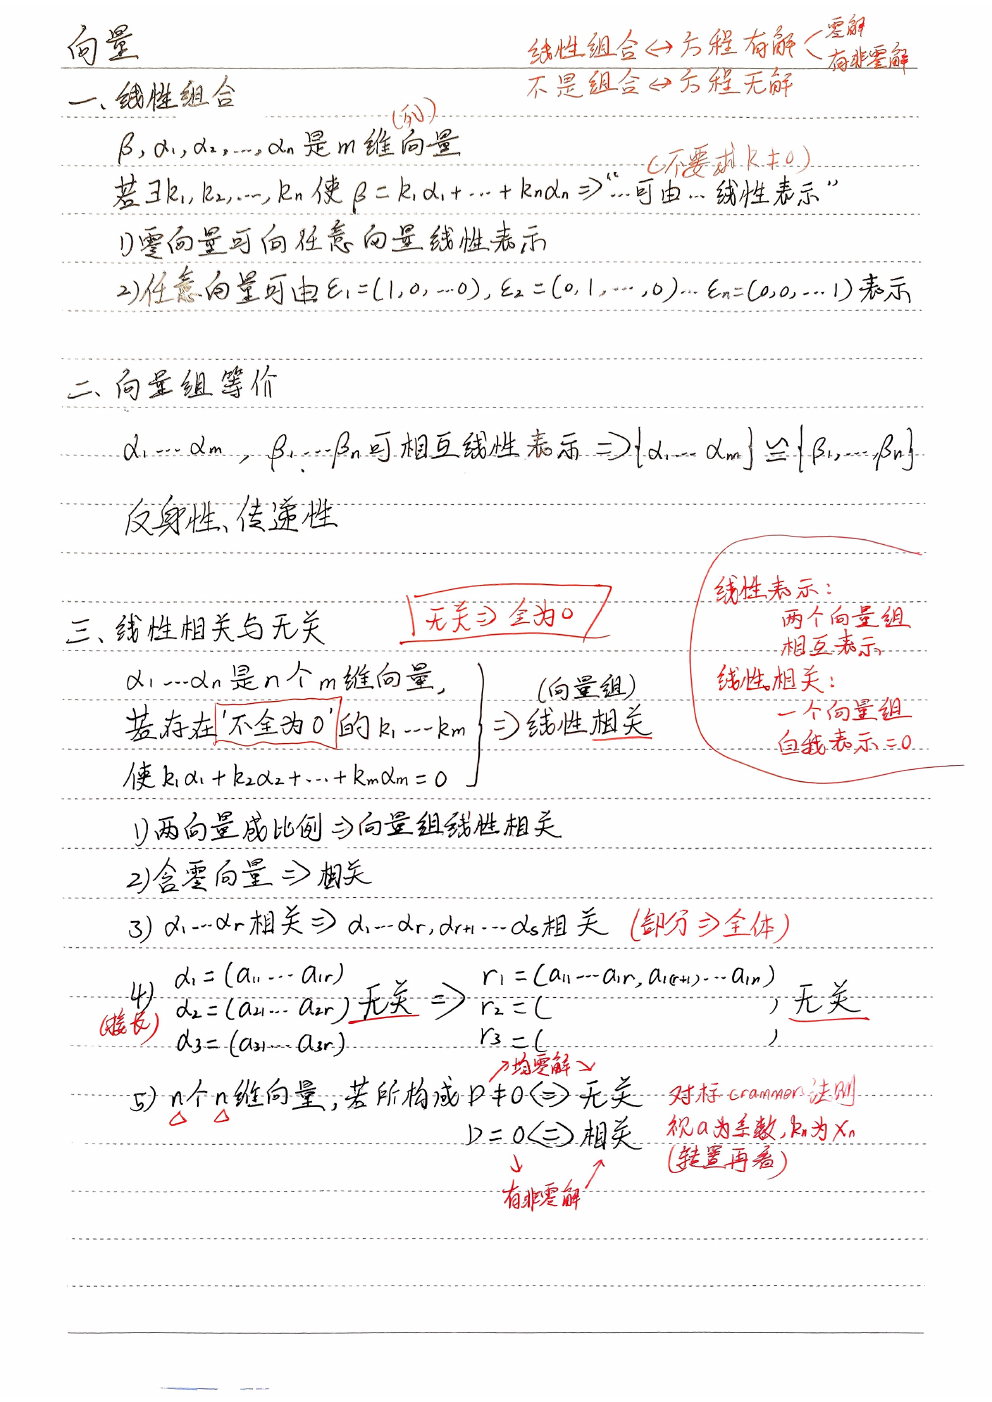 向量
线性组合↔方程有解<零解
有非零解
不是组合↔方程无解
一、线性组合
(列)
β,α₁,α₂,…,αn是m维向量
(不要求k≠0)
若∃k₁,k₂,…,kn使β=k₁α₁+…+knαn⇒“…可由…线性表示”
1)零向量可向任意向量线性表示
2)任意向量可由ε₁=(1,0,…0),ε₂=(0,1,…,0)…εn=(0,0,…1)表示
二、向量组等价
α₁…αm,β₁…βn可相互线性表示⇒{α₁…αm}≌{β₁,…,βn}
反身性、传递性
三、线性相关与无关
无关⇒全为0
线性表示:
两个向量组
相互表示
线性相关:
一个向量组
自我表示=0
α₁…αn是n个m维向量,
若存在'不全为0'的k₁…km
使k₁α₁+k₂α₂+…+kmαm=0
(向量组)
⇒线性相关
1)两向量成比例⇒向量组线性相关
2)含零向量⇒相关
3)α₁…αr相关⇒α₁…αr,αr+1…αs相关 (部分⇒全体)
4) α₁=(a₁₁…a₁r)
α₂=(a₂₁…a₂r)无关⇒
α₃=(a₃₁…a₃r)
(接长)
r₁=(a₁₁…a₁r,a₁(r+1)…a₁n)
r₂=( ) 无关
r₃=( )
↗均零解↘
5)n个n维向量,若所构成D≠0⇔无关
D=0⇔相关
↓ ↗
有非零解
对标crammer法则
视a为系数,kn为xn
(转置再看)